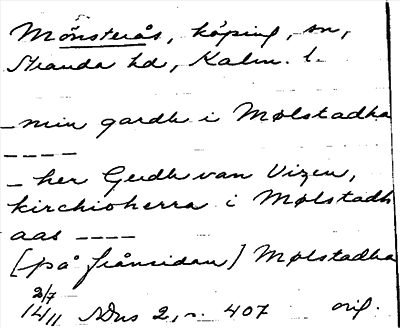 Mönsterås, köping, sn,
Stranda hd, Kalm. l.
– min gardh i Mølstadha
– – – –
– her Gudh van Vizen,
kirchioherra i Mølstadh
aas – – – –
[på frånsidan] Mølstadha
2/7
14/11 SDns 2, s. 407 orig.